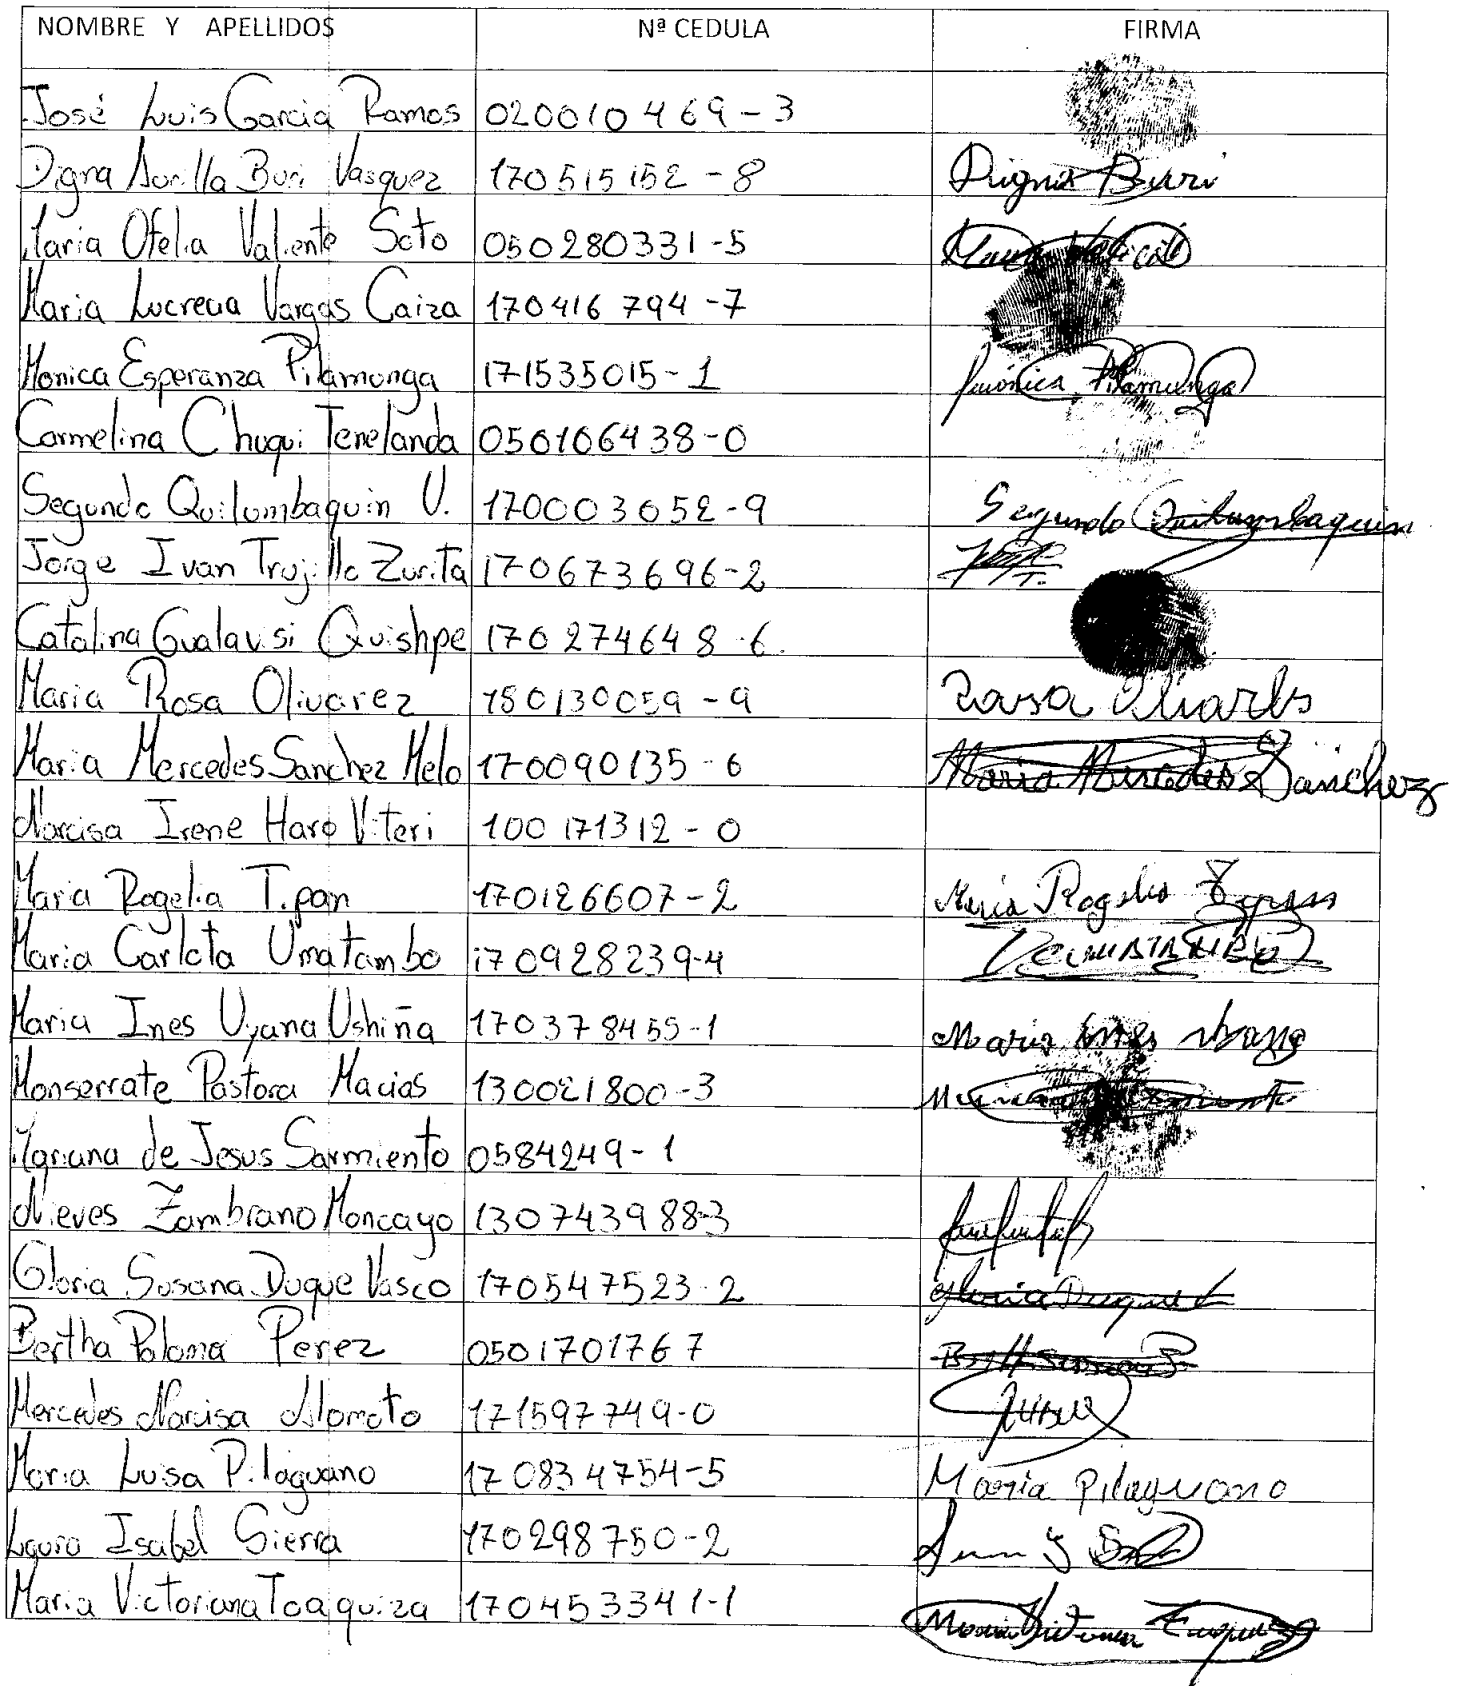 NOMBRE Y APELLIDOS Nª CEDULA FIRMA
José Luis Garcia Ramos 020010469-3
Digna Buri Vasquez 170515152-8 Digna Buri
Maria Ofelia Valiente Soto 050280331-5
Maria Lucrecia Vargas Caiza 170416794-7
Monica Esperanza Pilamonga 171535015-1 Pilamunga
Carmelina Chuqui Tenelanda 050106438-0
Segundo Quilombaquin U. 170003052-9 Segundo Quilumbaquin
Jorge Ivan Trujillo Zurita 170673696-2
Catalina Gualavisi Quishpe 170274648-6.
Maria Rosa Olivarez 180130059-9 Rosa
Maria Mercedes Sanchez Melo 170090135-6 Maria Mercedes Sanchez
Narcisa Irene Haro Viteri 100171312-0
Maria Rogelia Tipan 170126607-2 Maria
Maria Carlota Umatambo 170928239-4
Maria Ines Uyana Ushiña 170378455-1 Maria Ines
Monserrate Pastora Macias 130021800-3
Mariana de Jesus Sarmiento 0584249-1
Nieves Zambrano Moncayo 130743988-3
Gloria Susana Duque Vasco 170547523-2 Gloria Duque
Bertha Paloma Perez 0501701767
Mercedes Narcisa Alomoto 171597749-0
Maria Luisa Pilaguano 170834754-5 Maria Pilaguano
Laura Isabel Sierra 170298750-2
Maria Victoriana Toaquiza 170453341-1 Maria